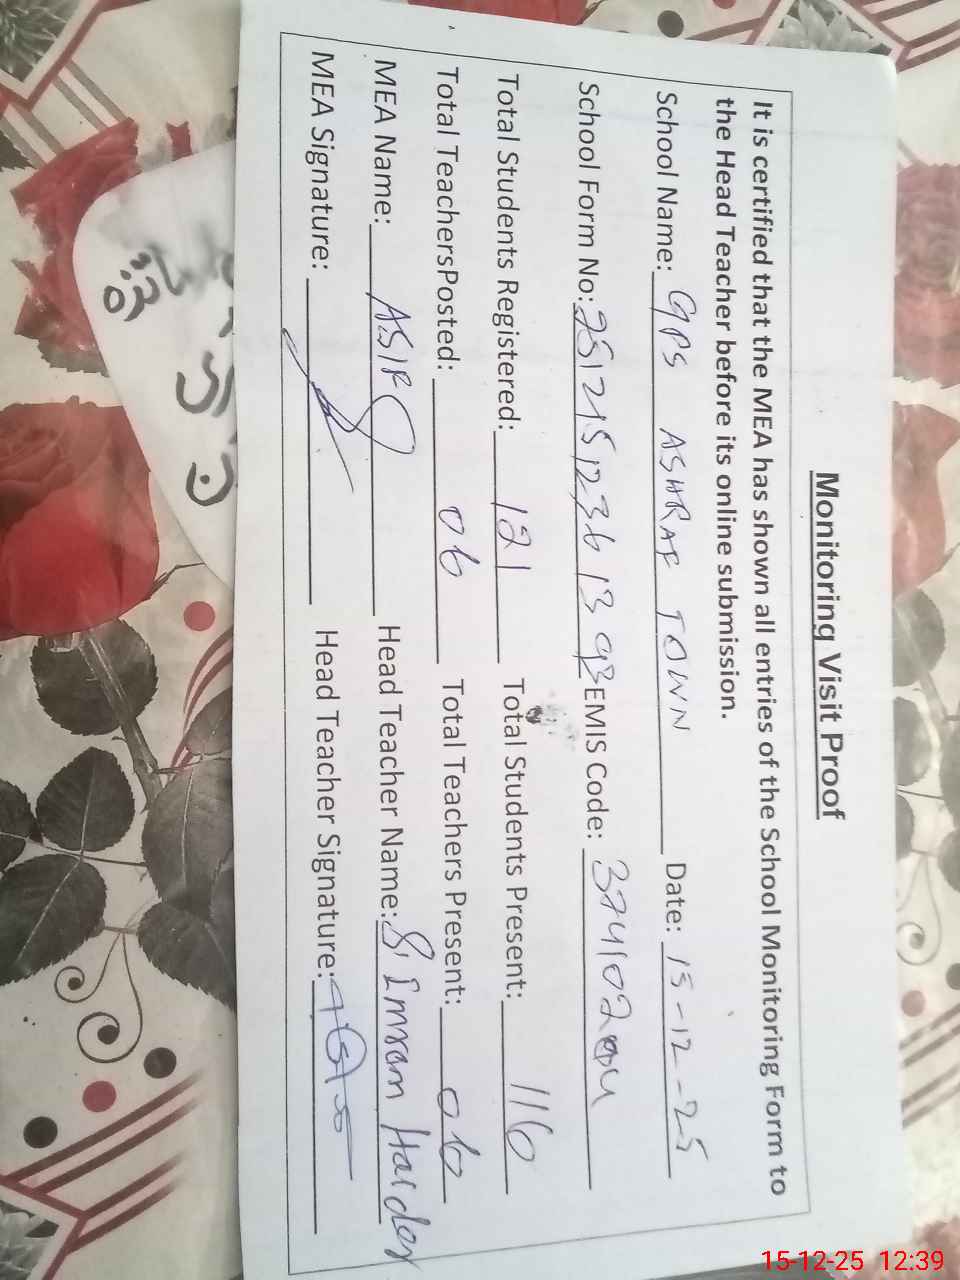 Monitoring Visit Proof
It is certified that the MEA has shown all entries of the School Monitoring Form to
the Head Teacher before its online submission.
School Name: GPS ASHRAF TOWN Date: 15-12-25
School Form No: EMIS Code:
Total Students Registered: 121 Total Students Present: 116
Total TeachersPosted: 06 Total Teachers Present: 06
MEA Name: ASIF Head Teacher Name: S. Imran Haider
MEA Signature: Head Teacher Signature:
15-12-25 12:39